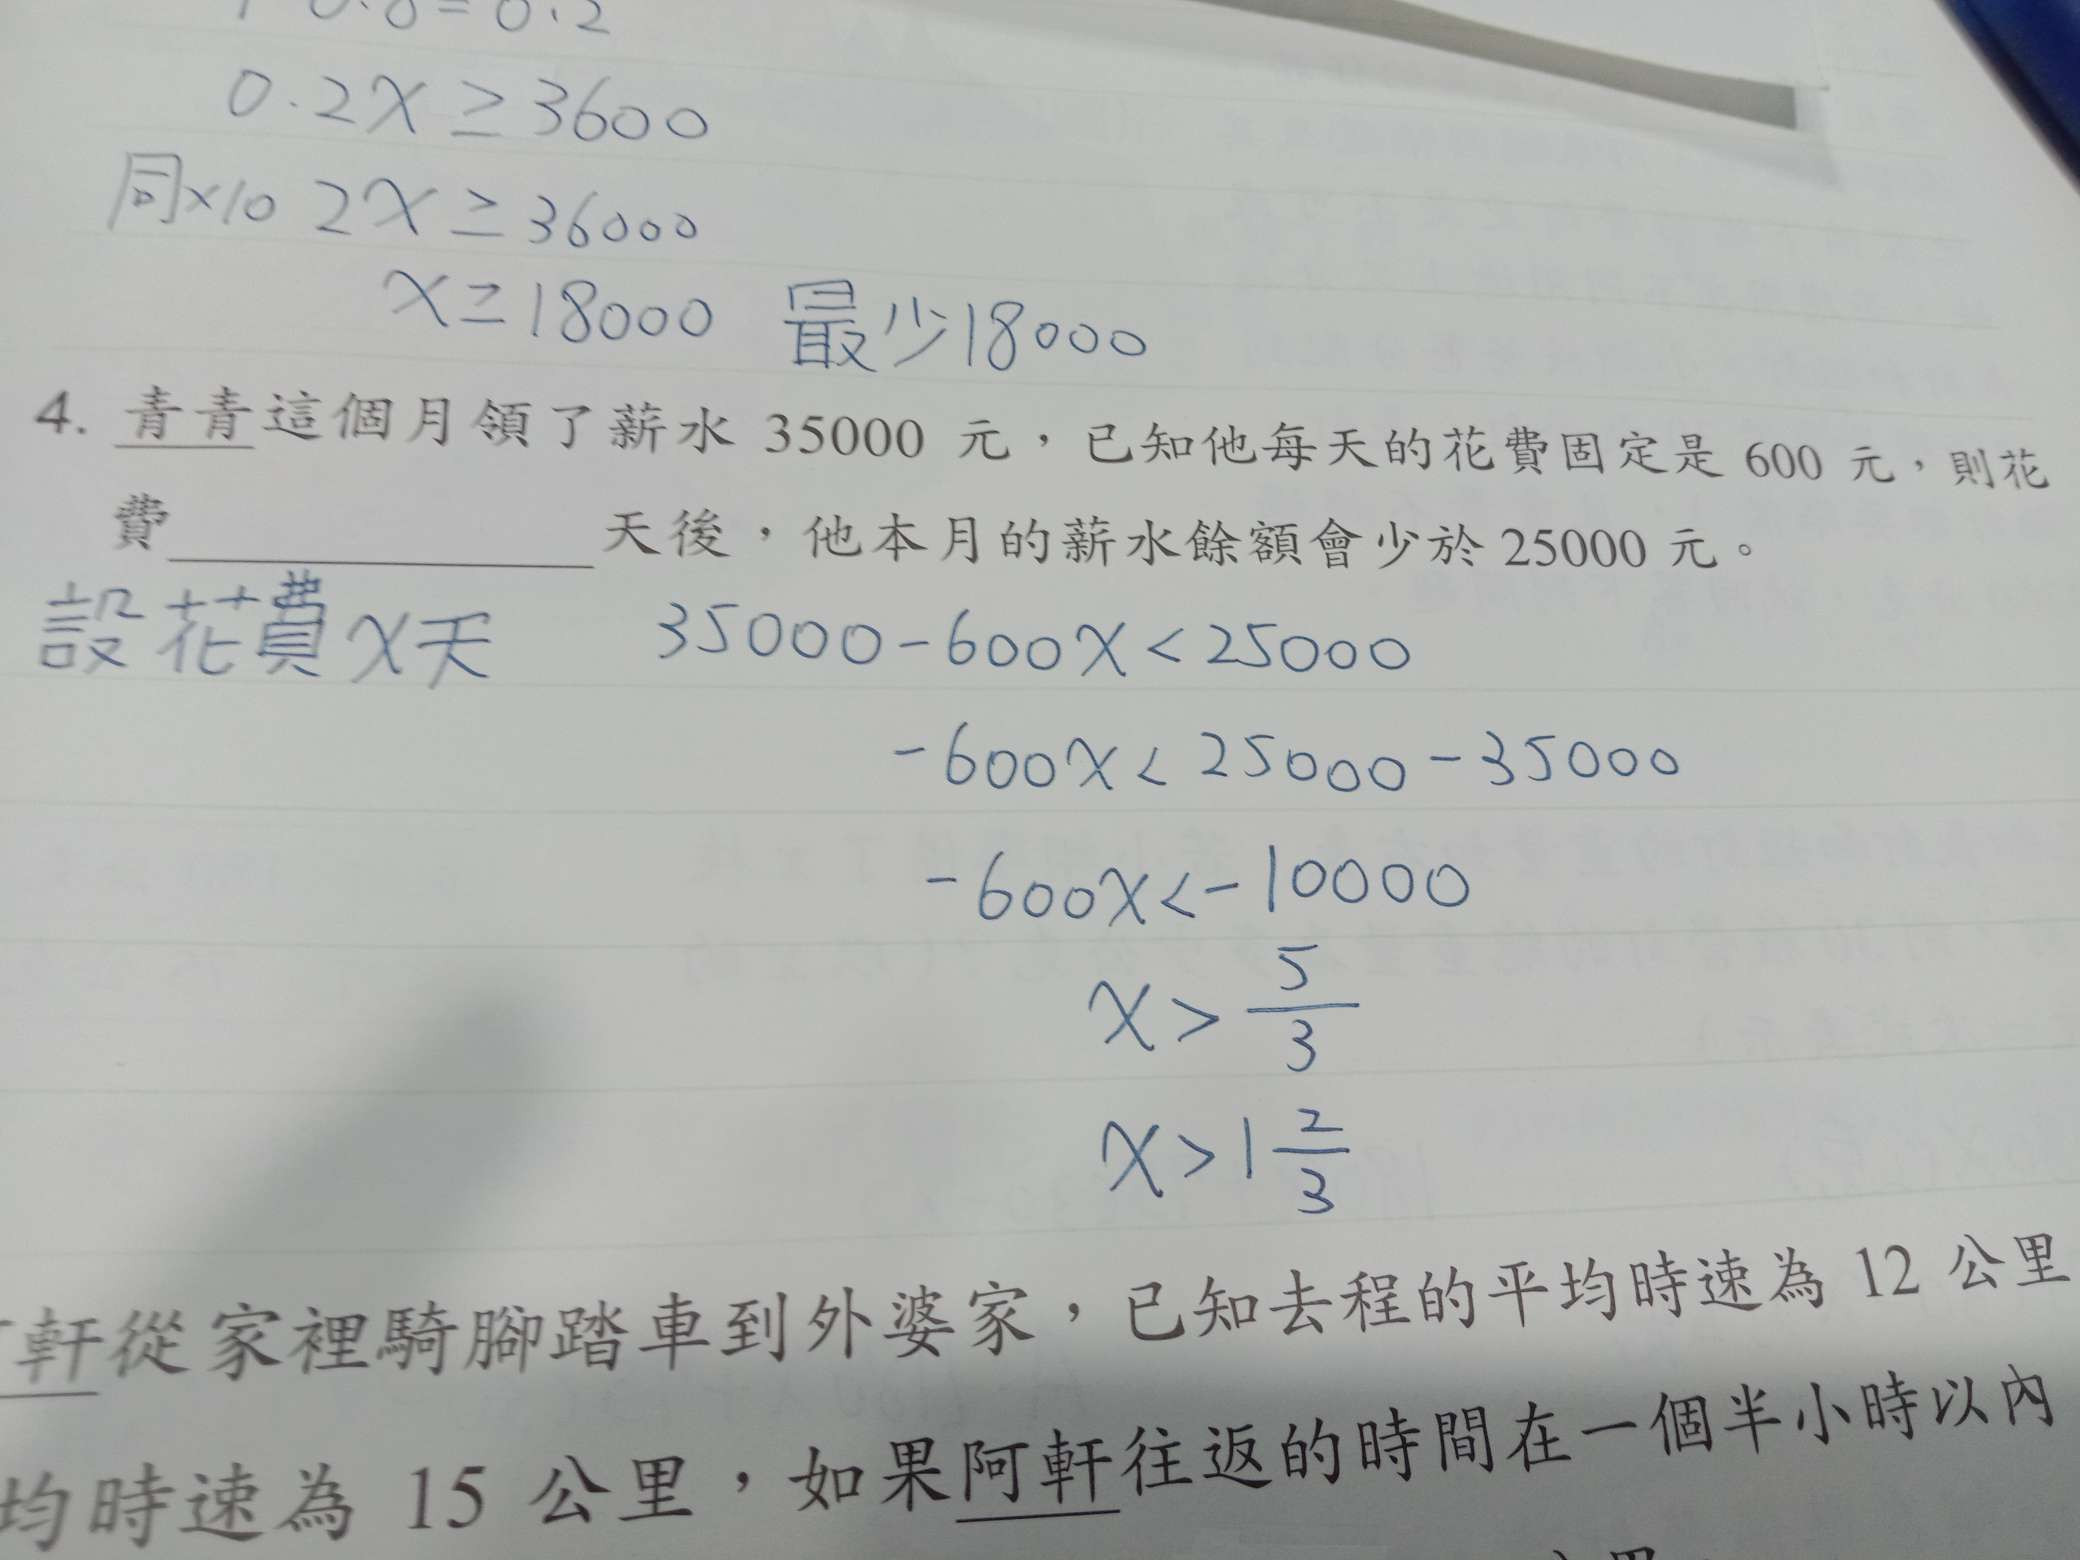 0.8=0.2
0.2x≥3600
同×10 2x≥36000
x≥18000 最少18000
4. 青青這個月領了薪水 35000 元，已知他每天的花費固定是 600 元，則花
費 天後，他本月的薪水餘額會少於 25000 元。
設花費x天 35000-600x<25000
-600x<25000-35000
-600x<-10000
x>5/3
x>1 2/3
軒從家裡騎腳踏車到外婆家，已知去程的平均時速為 12 公里
均時速為 15 公里，如果阿軒往返的時間在一個半小時以內